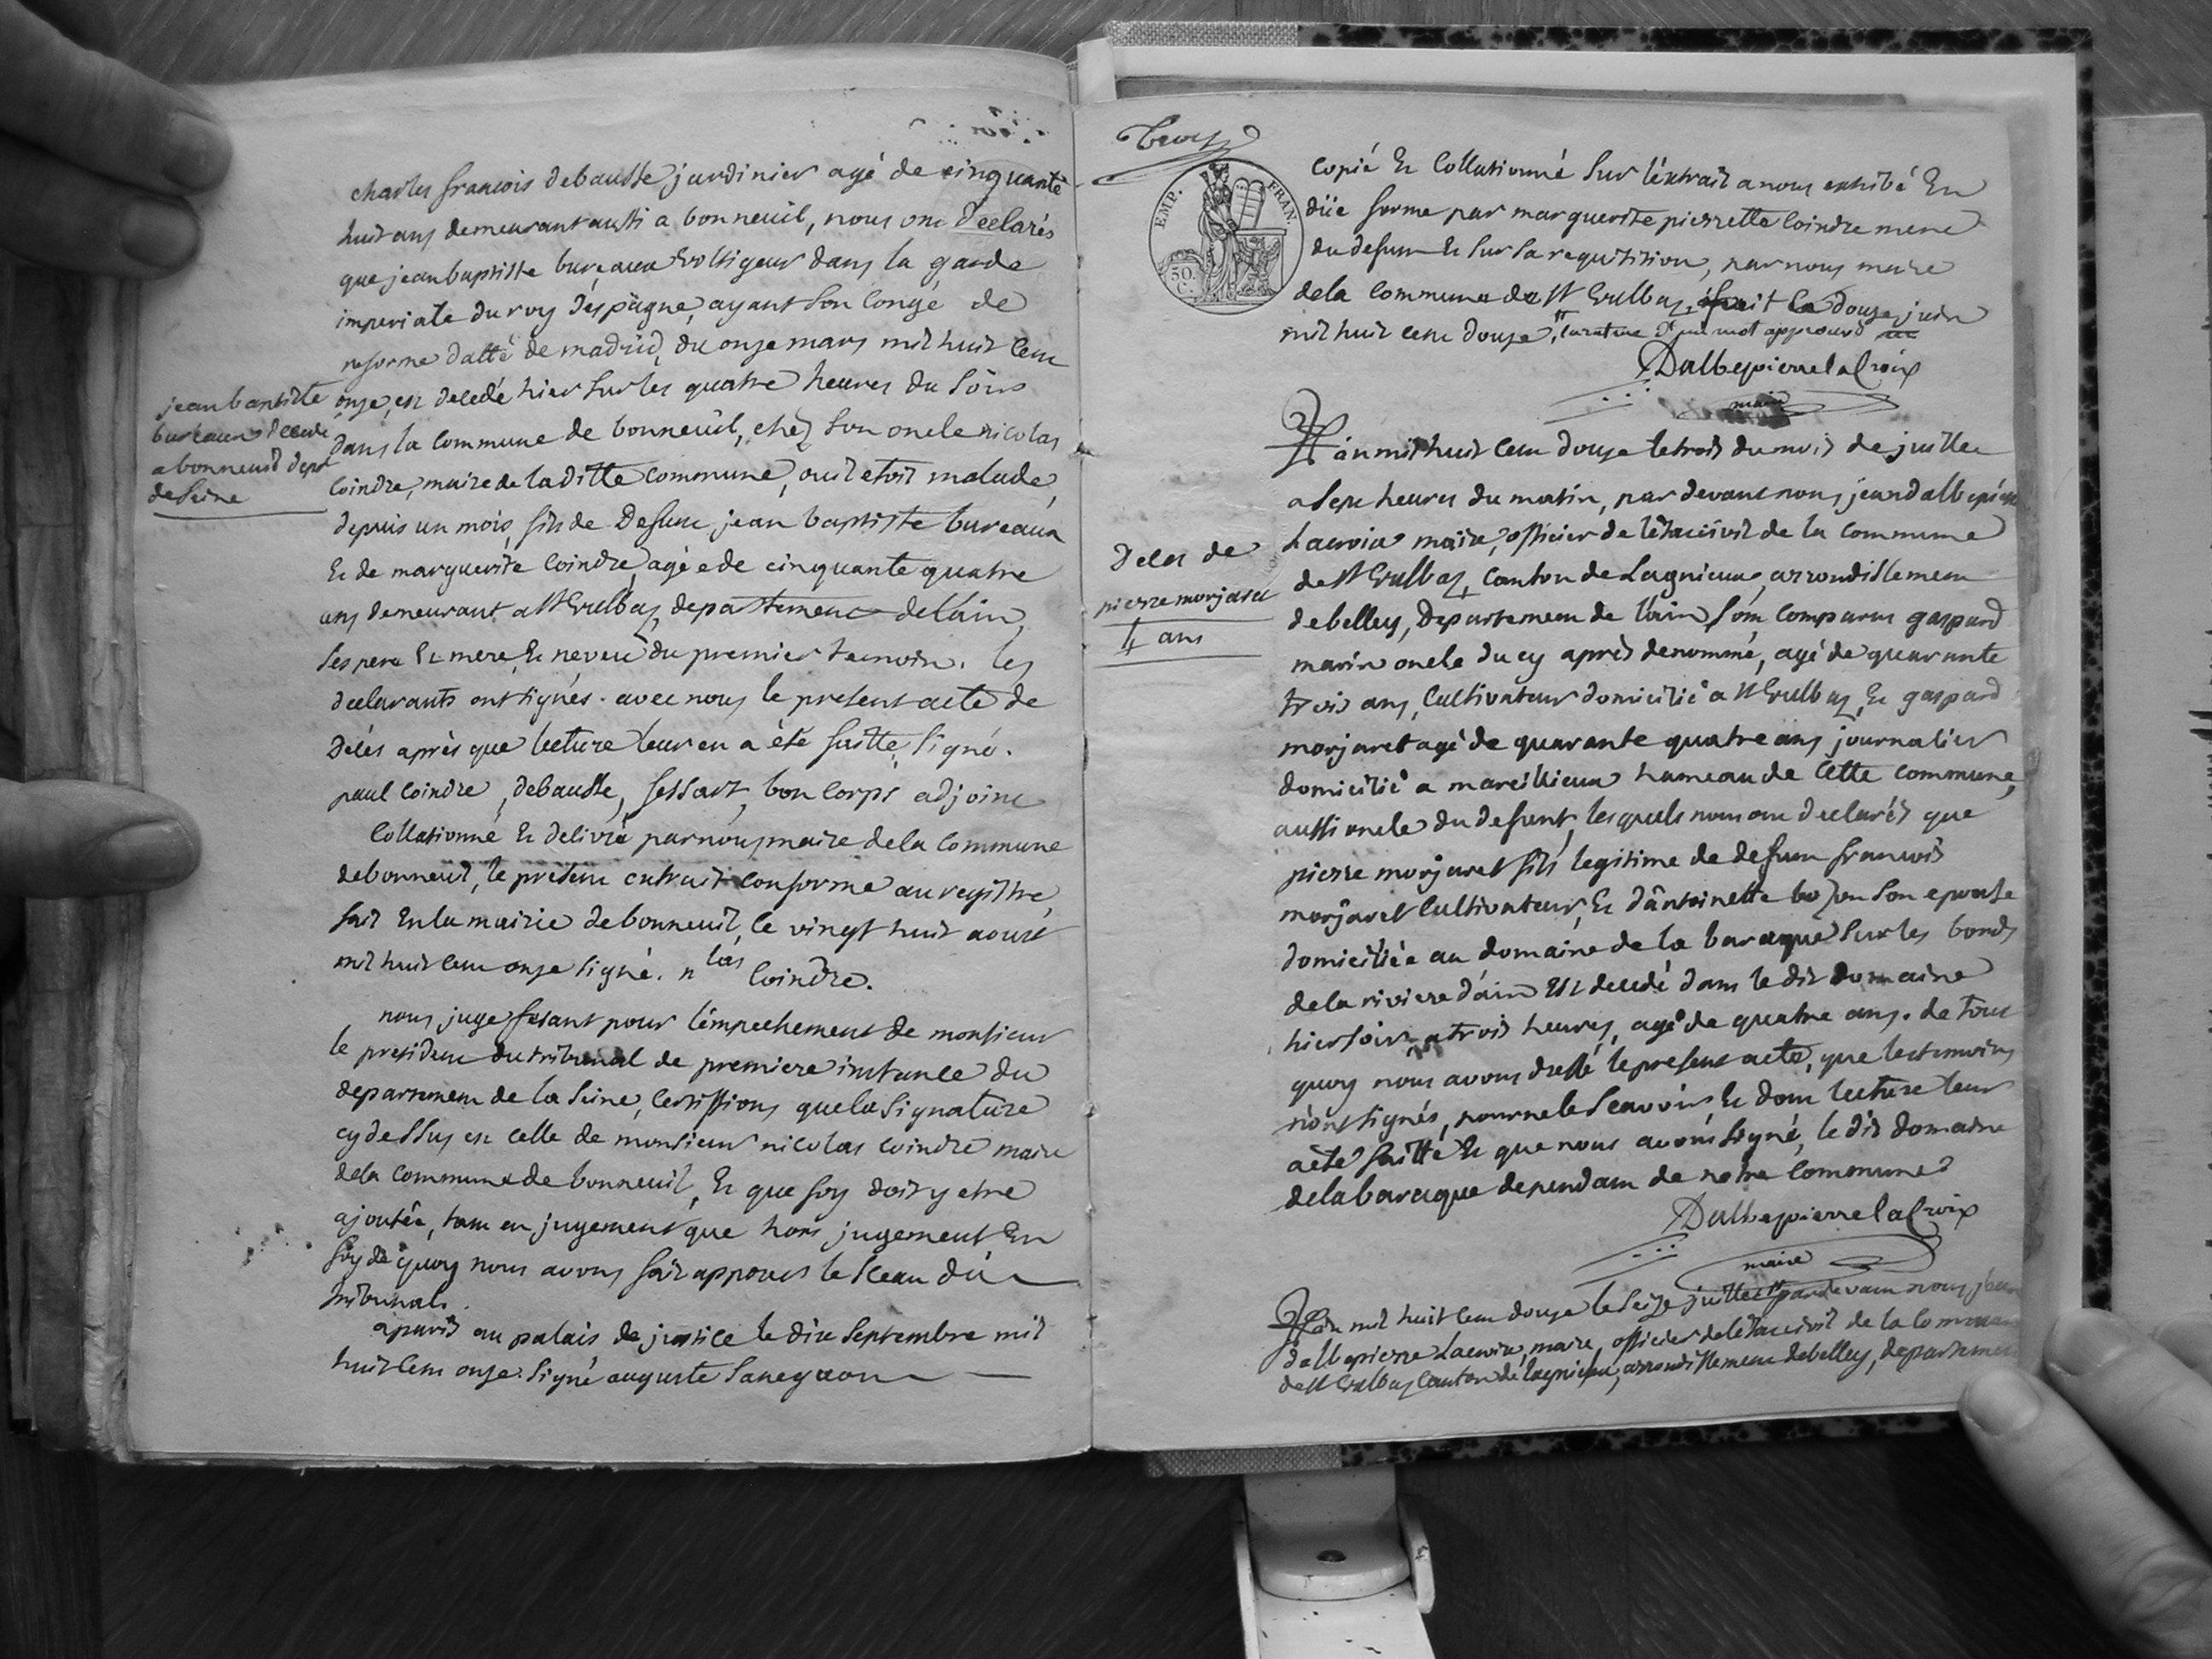 charles francois debausse jardinier agé de cinquante
huit ans demeurant aussi a bonneuil, nous ont declarés
que jean baptiste bureaux voltigeur dans la garde
imperiale du roy despagne, ayant son congé de
reforme datté de madrid, du onze mars mil huit cent
onze, est decedé hier sur les quatre heures du soir
dans la commune de bonneuil, chez son oncle nicolas
Coindre, maire de laditte commune, ou il etoit malade,
depuis un mois, fils de Defunt jean baptiste bureaux
Et de marguerite Coindre, agé de cinquante quatre
ans demeurant a St Vulbas, departement delain,
ses pere Et mere, Et neveu du premier temoin. les
declarants ont signés. avec nous le present acte de
Décès après que lecture leur en a été faitte, signé.
paul Coindre, debausse, fessart, bon corps adjoint
Collationné Et delivré par nous maire dela Commune
debonneuil, le present extrait conforme au registre,
fait En la mairie debonneuil, le vingt huit aoust
mil huit cent onze signé. nlas Coindre.
nous juge fesant pour lémpechement de monsieur
le president du tribunal de premiere instance du
departement de la Seine, Certiffions que la signature
cy dessus est celle de monsieur nicolas coindre maire
dela commune de bonneuil, Et que foy doit y etre
ajoutée, tant en jugement que hors jugement En
foy de quoy nous avons fait apposer le sceau du
tribunal.
a paris au palais de justice le dix Septembre mil
huit cent onze. signé auguste
jean baptiste
bureaux decedé
a bonneuil dept
de Seine
EMP. FRAN.
50. C.
copié Et Collationné Sur léxtrait a nous exhibé En
düe forme par marguerite pierrette Coindre mere
du defunt Et sur sa requisition, par nous maire
dela Commune de St Vulbas, fait le douze juin
mil huit cent douze, un mot approuvé
Dalbepierrelacroix
maire
L'an mil huit cent douze le trois du mois de juillet
a sept heures du matin, par devant nous, jean dalbepierre
Lacroix maire, officier de létat civil de la commune
de St Vulbas, Canton de Lagnieux, arrondissement
debelley, Departement de láin Sont Comparus gaspard
marin oncle du cy après denommé, agé de quarante
trois ans, Cultivateur domicilié a St Vulbas, Et gaspard
morjaret agé de quarante quatre ans journalier
domicilié a marcillieux hameau de Cette commune,
aussi oncle du defunt, lesquels nous ont declarés que
pierre morjaret fils legitime de defunt francois
morjaret Cultivateur, Et dántoinette bozon son epouse
domiciliée au domaine de la baraque sur les bords
dela riviere dáin Est decedé dans le dit domaine
hier soir a trois heures, agé de quatre ans. de tout
quoy nous avons dressé le present acte, que les temoins
n'ont signés, pour ne le Scavoir, Et dont lecture leur
a été faitte Et que nous avons signé, le dit domaine
delabaraque dependant de notre Commune
Dalbepierrelacroix
maire
L'an mil huit cent douze le seize juillet par devant nous, jean
dalbepierre Lacroix, maire, officier de létat civil de la Commune
de St Vulbas Canton de lagnieux, arrondissement debelley, departement
Deces de
pierre morjaret
4 ans